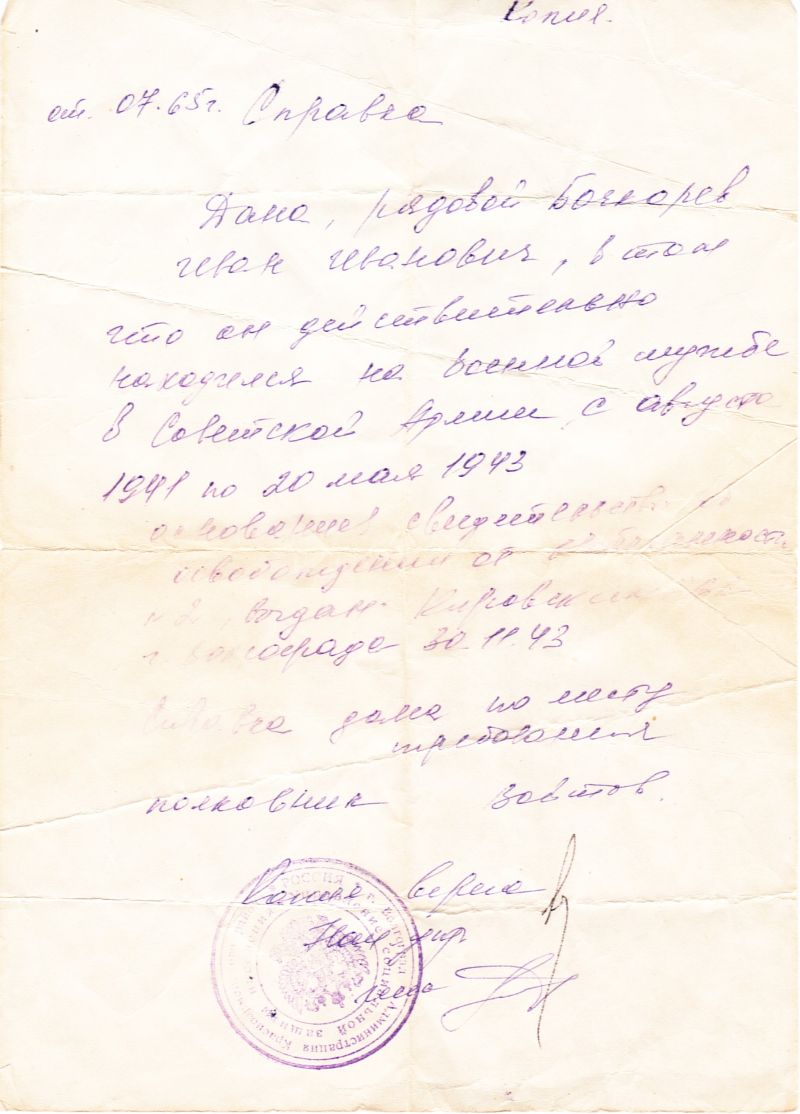 Копия.
от. 07.65г. Справка
Дана, рядовой Бочкарев
Иван Иванович, в том
что он действительно
находился на военной службе
в Советской Армии с августа
1941 по 20 мая 1943
свидетельства
освобождении от
№2, выдан Кировским
30.11.43
Справка дана по месту
требования
полковник
Копия верна
РОССИЯ
г. Волгоград
Администрация
социальной защиты